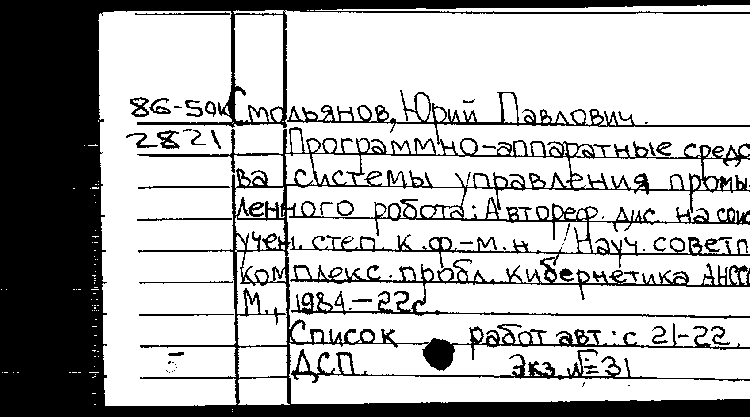 86-50к Смольянов, Юрий Павлович.
2821 Программно-аппаратные средст
ва системы управления промыш
ленного робота: Автореф. дис. на соиск
учен. степ. к. ф.-м. н. / Науч. совет п
комплекс. пробл. кибернетика АНССС
М., 1984.-22с.
Список работ авт.: с 21-22.
5 ДСП. Экз. №31